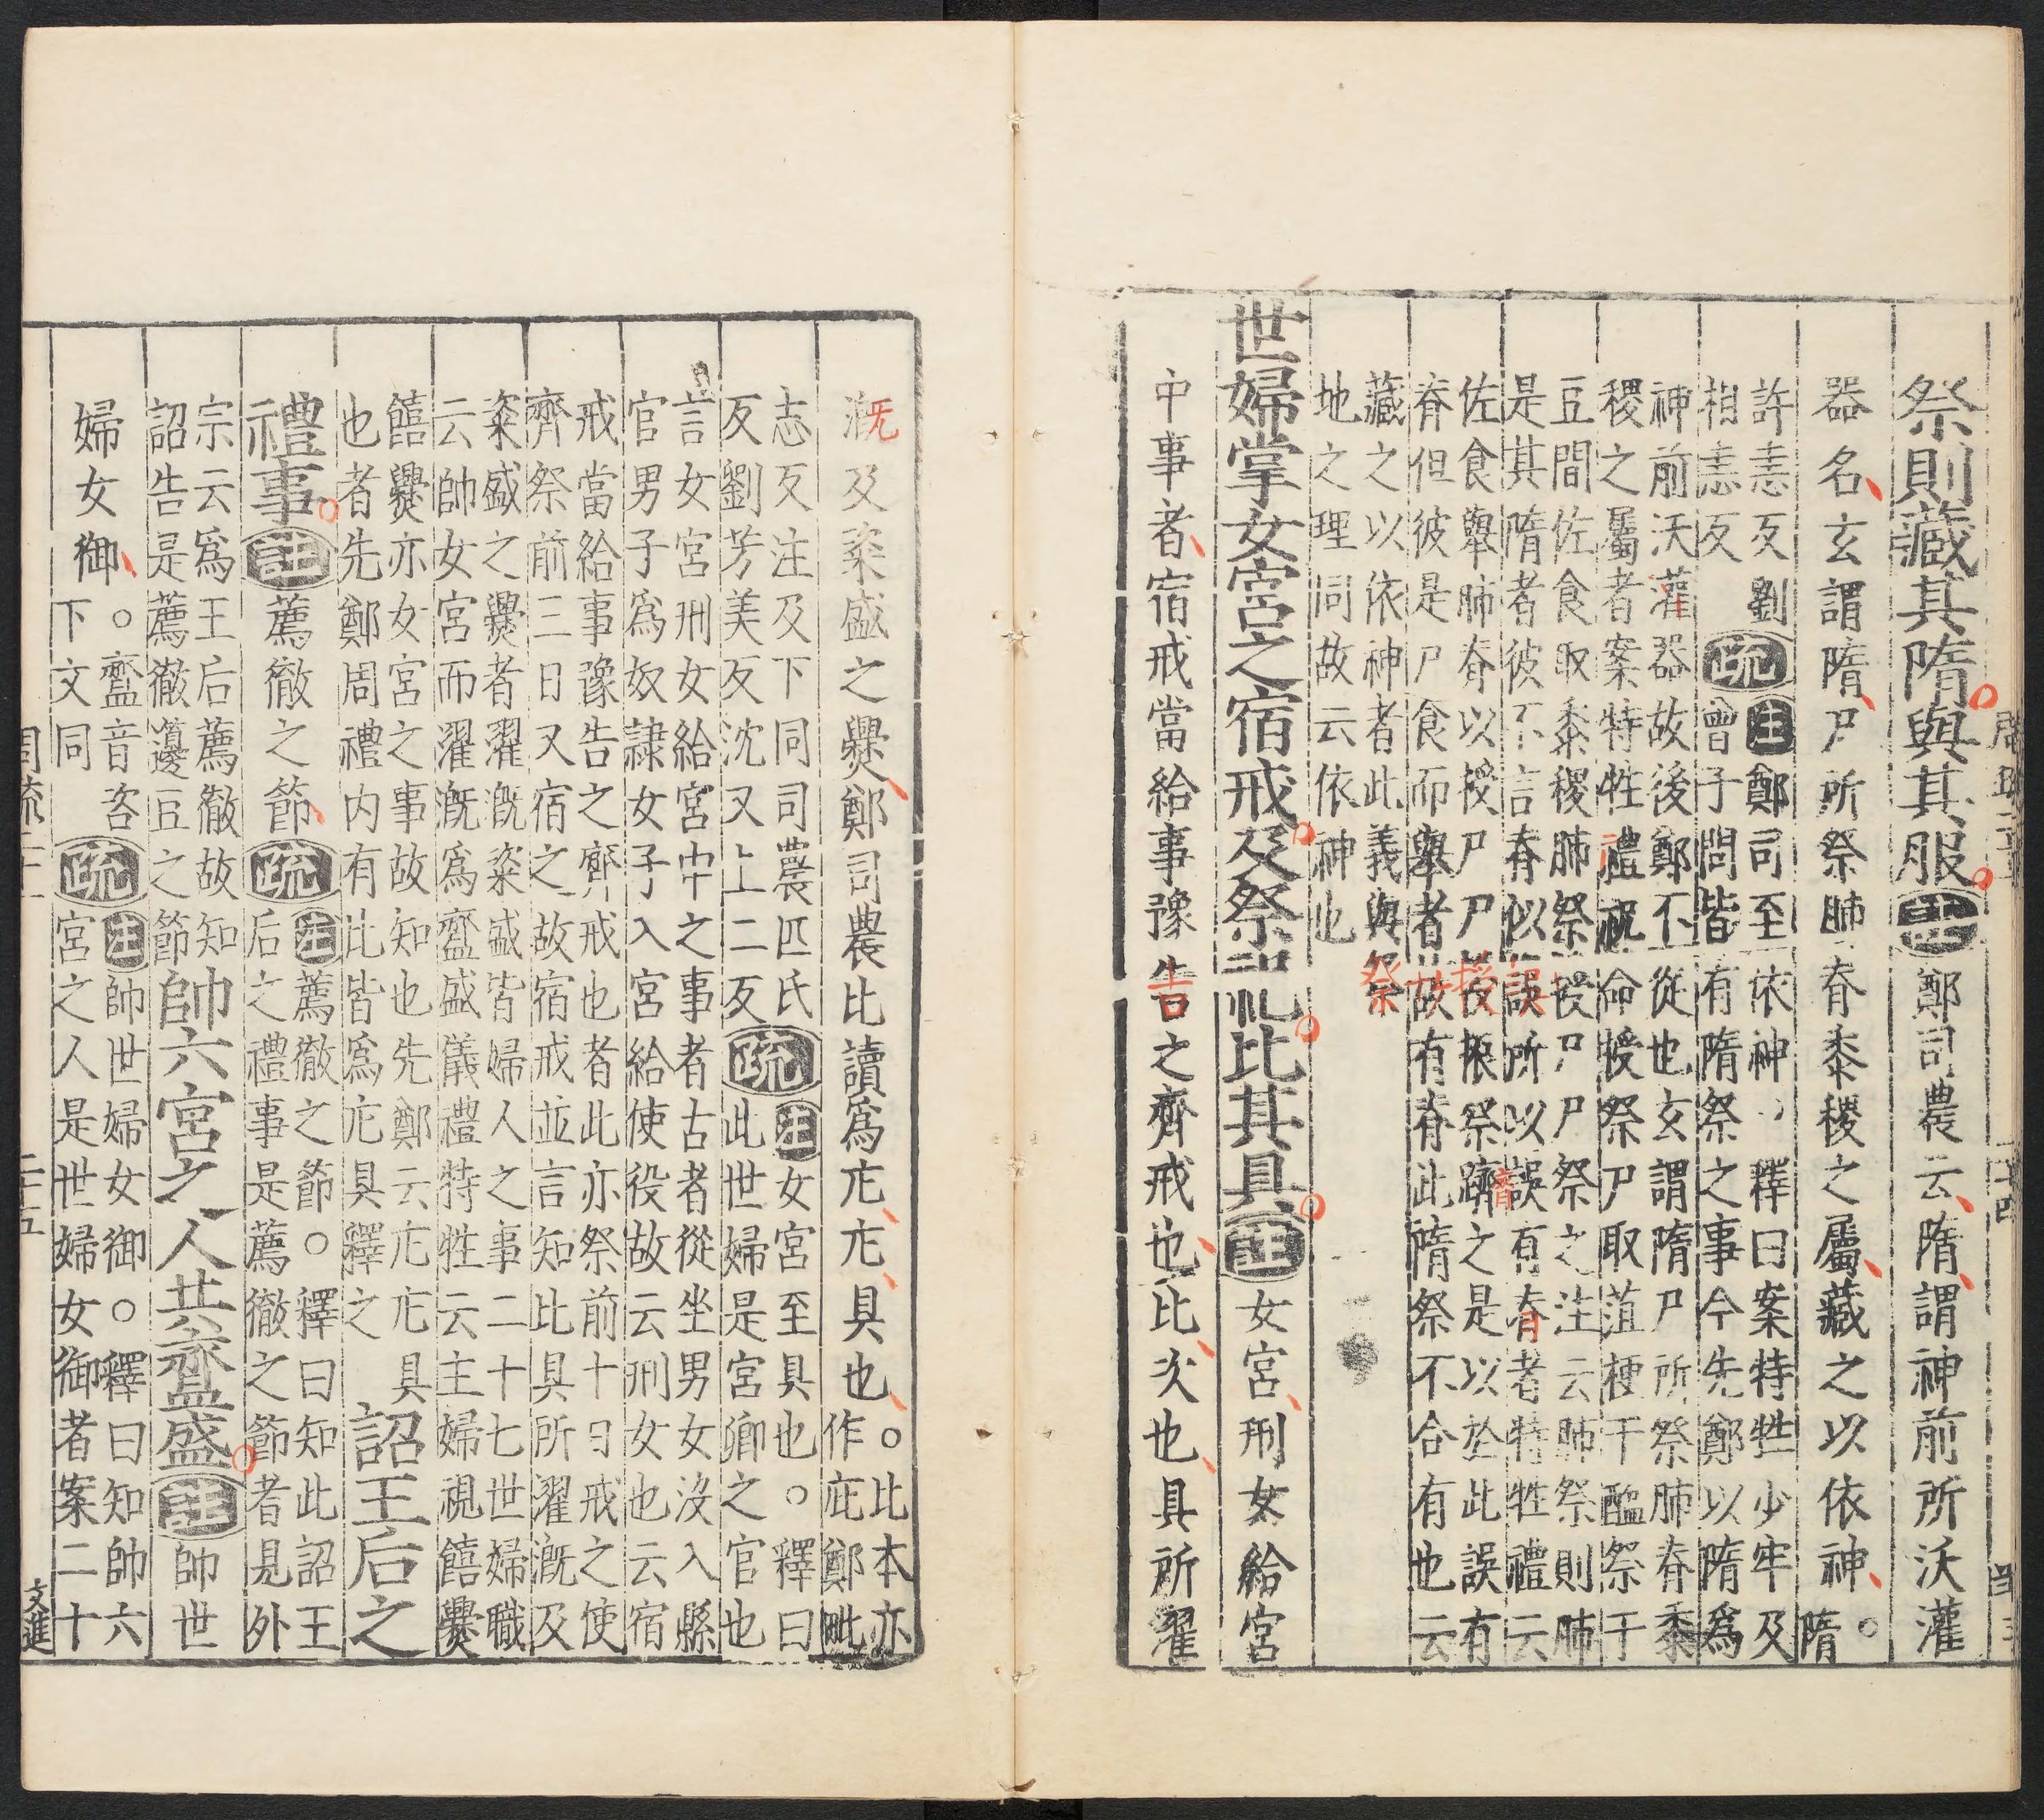 祭則藏其隋與其服註鄭司農云隋謂神前所沃灌
器名玄謂隋尸所祭肺脊黍稷之屬藏之以依神。隋
許恚反劉
相恚反
疏
注鄭司至依神 釋曰案特牲少牢及
曾子問皆有隋祭之事今先鄭以隋爲
神前沃灌器故後鄭不從也玄謂隋尸所祭肺脊黍
稷之屬者案特牲禮祝命挼祭尸取菹㨎于醢祭于
豆間佐食取黍稷肺祭授尸尸祭之注云肺祭則肺
是其隋者彼不言脊似誤所以誤有脊者特牲禮云
佐食舉肺脊以授尸尸受振祭嚌之是以於此誤有
脊但彼是尸食而舉者故有脊此隋祭不合有也云
藏之以依神者此義與祭
地之理同故云依神也
世婦掌女宮之宿戒及祭祀比其具註女宮刑女給宮
中事者宿戒當給事豫告之齊戒也比次也具所濯
漑及粢盛之爨鄭司農比讀爲庀庀具也。比本亦
作庇鄭毗
志反注及下同司農匹氏
反劉芳美反沈又上二反
疏
注女宮至具也。釋曰
此世婦是宮卿之官也
言女宮刑女給宮中之事者古者從坐男女沒入縣
官男子爲奴隷女子入宮給使役故云刑女也云宿
戒當給事豫告之齊戒也者此亦祭前十日戒之使
齊祭前三日又宿之故宿戒並言知此具所濯漑及
粢盛之爨者濯漑粢盛皆婦人之事二十七世婦職
云帥女宮而濯漑爲齍盛儀禮特牲云主婦視饎爨
饎爨亦女宮之事故知也先鄭云庀庀具
也者先鄭周禮內有此皆爲庀具釋之
詔王后之
禮事。註薦徹之節疏
注薦徹之節。釋曰知此詔王
后之禮事是薦徹之節者見外
宗云爲王后薦徹故知
詔告是薦徹籩豆之節
帥六宮之人共齍盛註帥世
婦女御。齍音咨
下文同
疏
注帥世婦女御。釋曰知帥六
宮之人是世婦女御者案二十
周疏二十一
二十五
文進